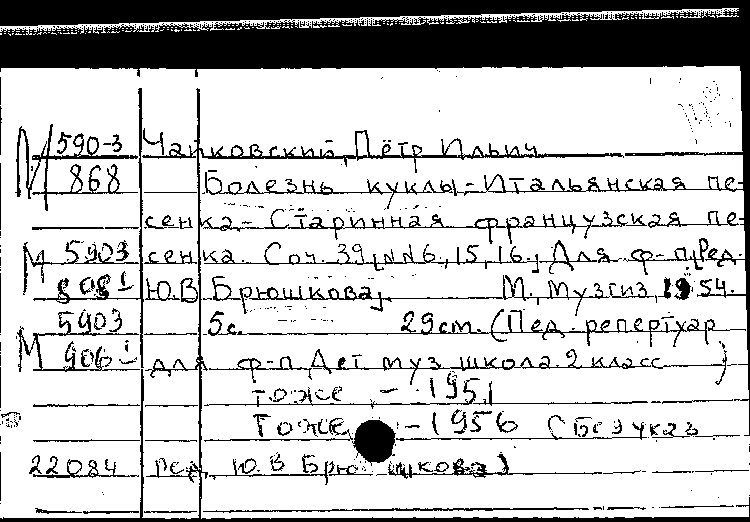 М 590-3 Чайковский, Пётр Ильич
868 Болезнь куклы.-Итальянская пе-
сенка.- Старинная французская пе-
М 5903 сенка. Соч. 39, NN6, 15, 16. Для ф-п. Ред.
8081 Ю.В Брюшкова. М., Музгиз, 1954.
5903 5с. 29см. (Пед. репертуар
М 9061 для ф-п. Дет муз школа. 2 класс)
тоже - 1951
Тоже - 1956 (без указ
22084 ред. Ю.В Брюшкова)